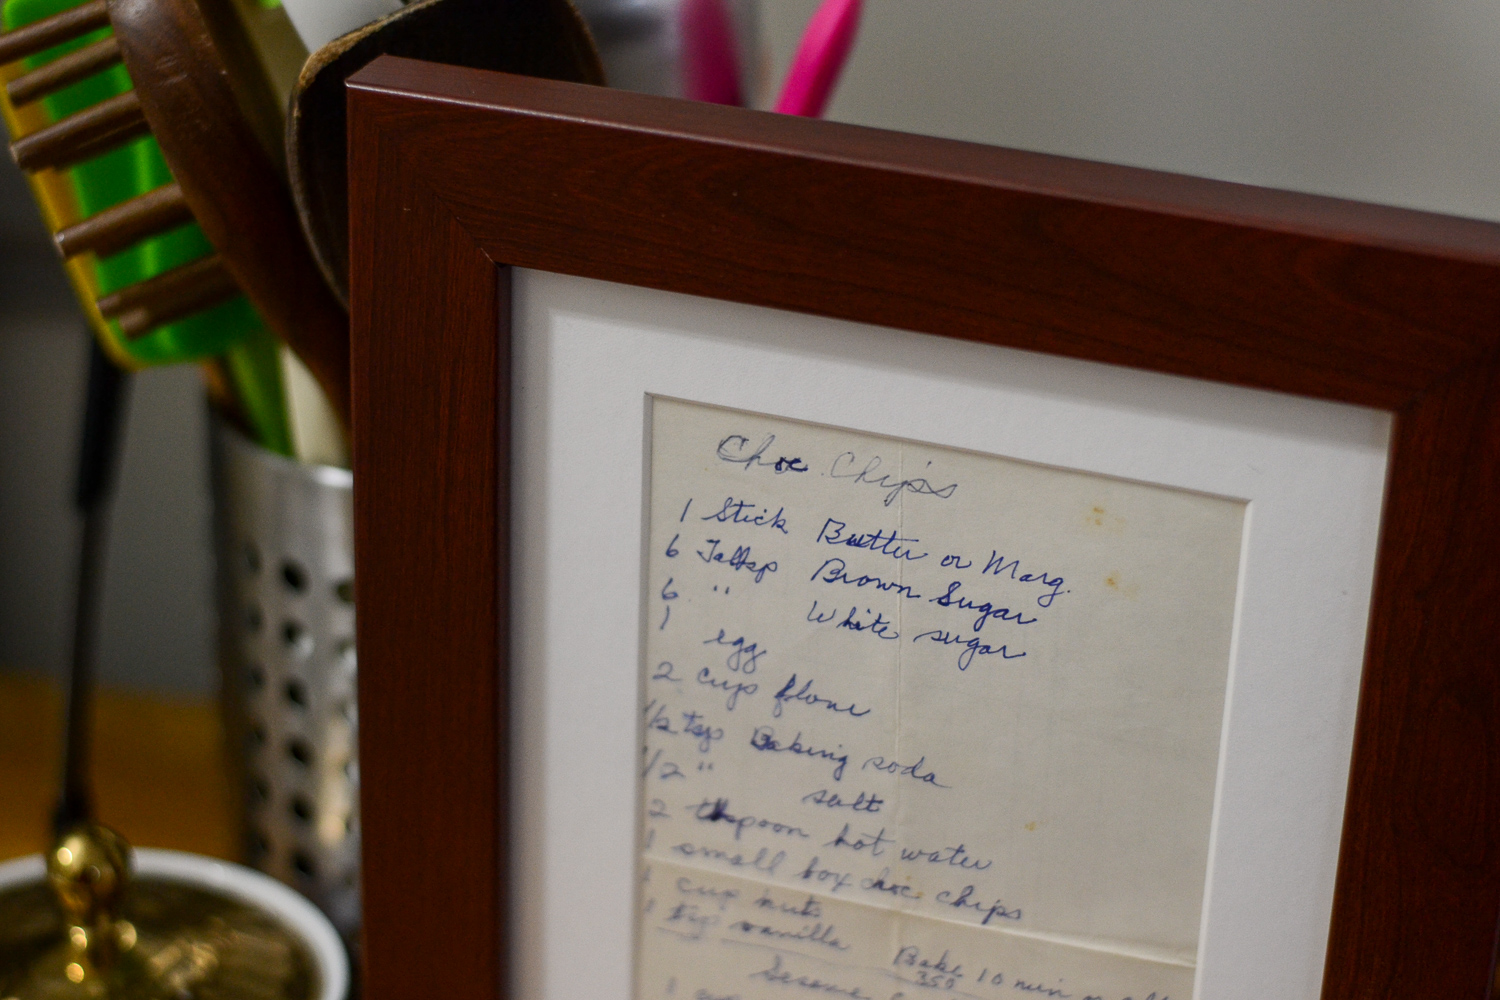 Choc Chips
1 Stick Butter or Marg.
6 Tablsp Brown Sugar
6 " White sugar
1 egg
2 cup flour
1/2 tsp Baking soda
1/2 " salt
2 tspoon hot water
1 small box choc chips
1 cup nuts
1 tsp vanilla Bake 10 min
350
Sesame
1 cup